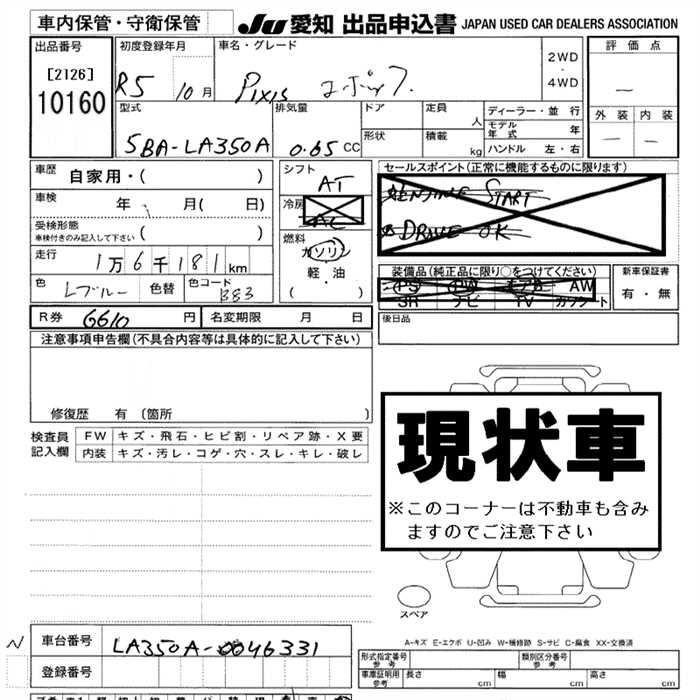 車内保管・守衛保管
JU 愛知 出品申込書 JAPAN USED CAR DEALERS ASSOCIATION
出品番号
[2126]
10160
初度登録年月
R5 10月
車名・グレード
Pixis エポック
2WD
・
4WD
評価点
―
外装 内装
― ―
型式
5BA-LA350A
排気量
0.65 CC
ドア
形状
定員 人
積載 kg
ディーラー・並行
モデル年式 年
ハンドル 左・右
車歴 自家用・( )
車検 年 月( 日)
受検形態
車検付きのみ記入して下さい ( )
走行 1万6千181km
色 Lブルー 色替 色コード B83
シフト AT
冷房 AC
燃料
ガソリン
軽・油
( )
セールスポイント(正常に機能するものに限ります)
ENGINE START
DRIVE OK
装備品(純正品に限り○をつけてください)
PS PW エアB AW
SR ナビ TV カセット
新車保証書
有・無
R券 6610 円 名変期限 月 日
後日品
注意事項申告欄(不具合内容等は具体的に記入して下さい)
修復歴 有(箇所 )
検査員
記入欄
FW キズ・飛石・ヒビ割・リペア跡・X要
内装 キズ・汚レ・コゲ・穴・スレ・キレ・破レ
現状車
※このコーナーは不動車も含み
ますのでご注意下さい
スペア
A-キズ E-エクボ U-凹み W-補修跡 S-サビ C-腐食 XX-交換済
N 車台番号 LA350A-0046331
登録番号
形式指定番号
参考
類別区分番号
参考
車庫証明用
参考
長さ cm 幅 cm 高さ cm